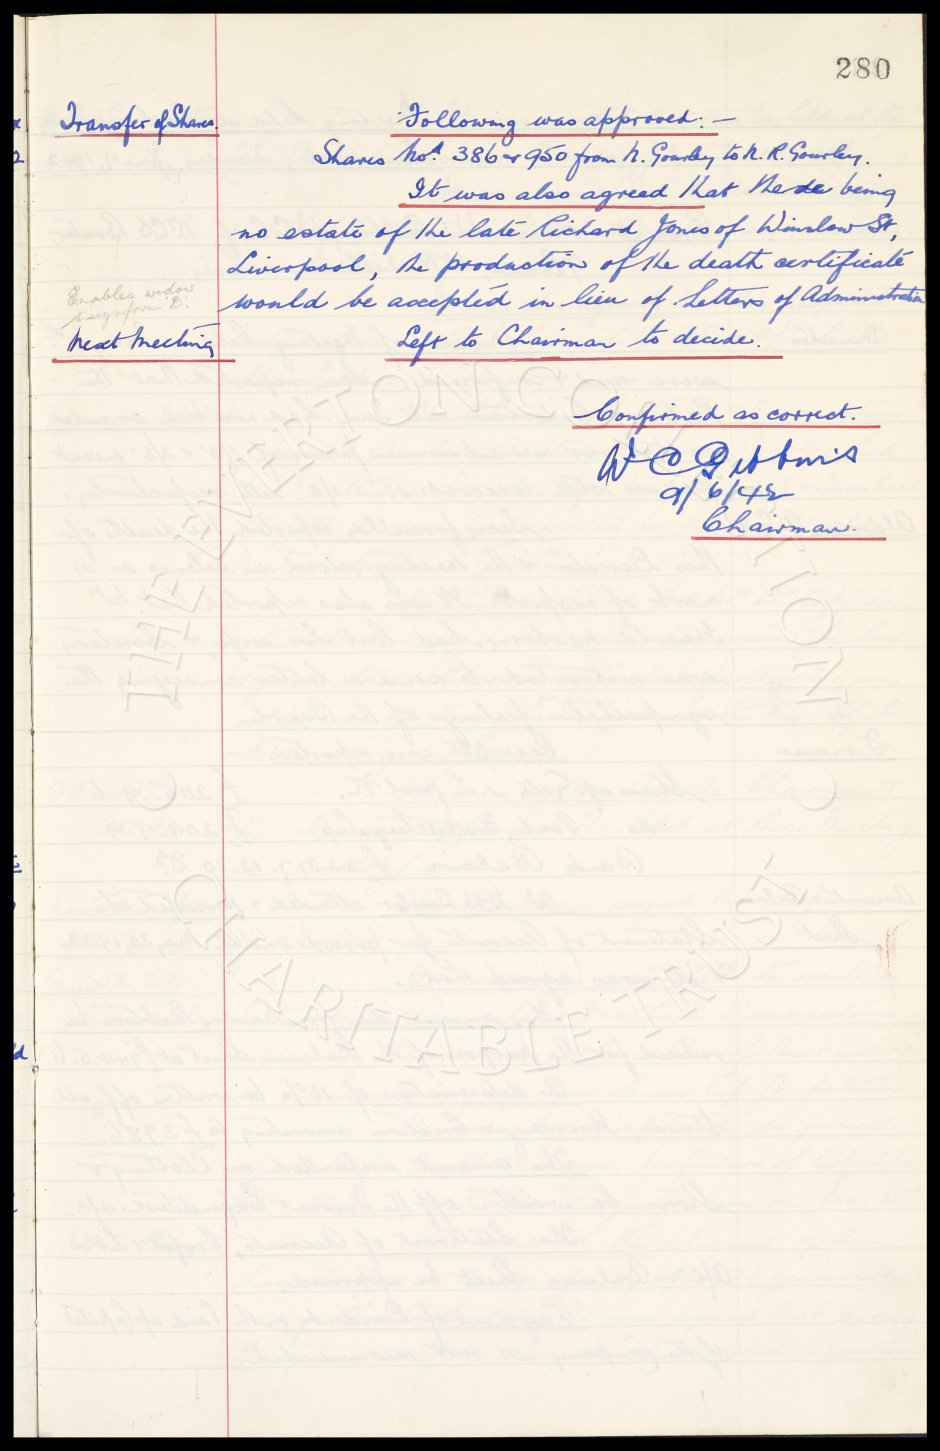 280
Transfer of Shares. Following was approved: —
Shares Nos. 386 & 950 from N. Gourley to N. R. Gourley.
It was also agreed that there being
no estate of the late Richard Jones of Winslow St,
Liverpool, the production of the death certificate
would be accepted in lieu of Letters of Administration
Enables widow
to sign form D.
Next Meeting Left to Chairman to decide.
Confirmed as correct.
W C Gibbins
9/6/42
Chairman.
THE EVERTON COLLECTION
CHARITABLE TRUST